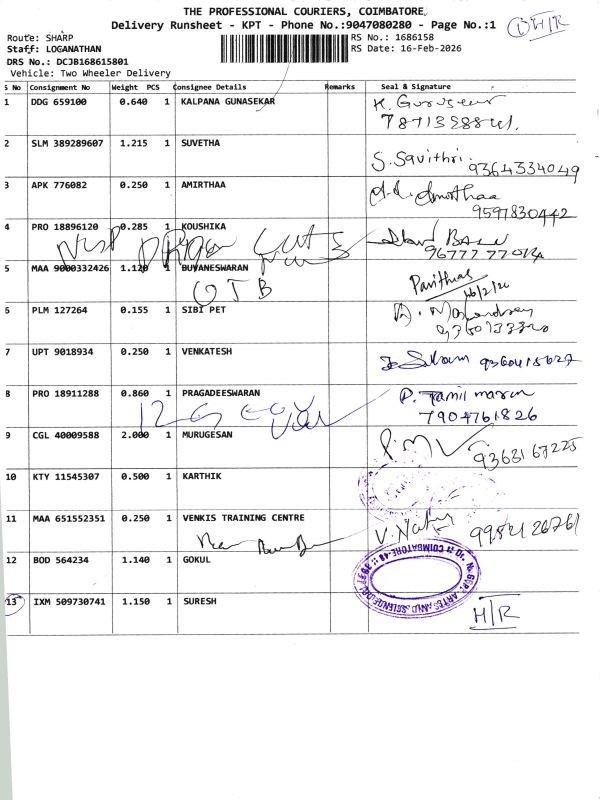 THE PROFESSIONAL COURIERS, COIMBATORE,
Delivery Runsheet - KPT - Phone No.:9047080280 - Page No.:1
1 H/R
Route: SHARP
RS No.: 1686158
Staff: LOGANATHAN
RS Date: 16-Feb-2026
DRS No.: DCJB168615801
Vehicle: Two Wheeler Delivery
S No Consignment No Weight PCS Consignee Details Remarks Seal & Signature
1 DDG 659100 0.640 1 KALPANA GUNASEKAR
2 SLM 389289607 1.215 1 SUVETHA S. Savithri. 9364334049
3 APK 776082 0.250 1 AMIRTHAA
9597830442
4 PRO 18896120 0.285 1 KOUSHIKA
5 MAA 9000332426 1.120 1 BUVANESWARAN
OTB
16/2/26
6 PLM 127264 0.155 1 SIBI PET
7 UPT 9018934 0.250 1 VENKATESH
8 PRO 18911288 0.860 1 PRAGADEESWARAN P. Tamil maran
7904761826
9 CGL 40009588 2.000 1 MURUGESAN 9363167225
10 KTY 11545307 0.500 1 KARTHIK
11 MAA 651552351 0.250 1 VENKIS TRAINING CENTRE
12 BOD 564234 1.140 1 GOKUL
13 IXM 509730741 1.150 1 SURESH H/R